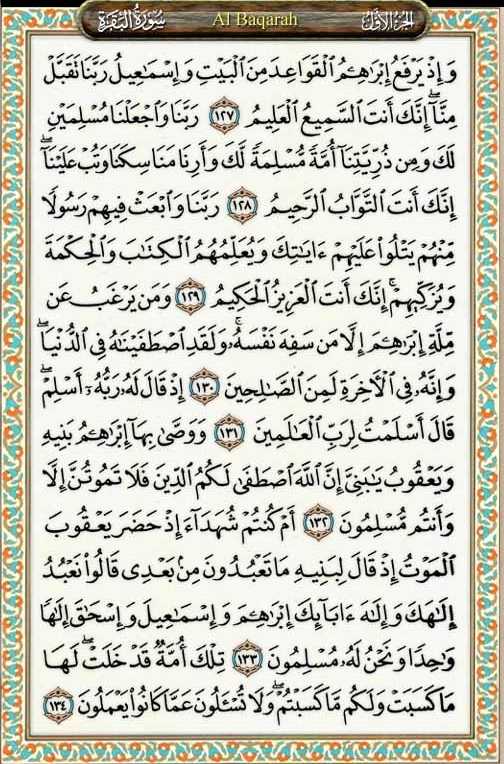 سُورَةُ البَقَرَةِ Al Baqarah الجُزءُ الأَوَّلُ
وَإِذْ يَرْفَعُ إِبْرَٰهِـۧمُ ٱلْقَوَاعِدَ مِنَ ٱلْبَيْتِ وَإِسْمَٰعِيلُ رَبَّنَا تَقَبَّلْ
مِنَّآ ۖ إِنَّكَ أَنتَ ٱلسَّمِيعُ ٱلْعَلِيمُ ١٢٧ رَبَّنَا وَٱجْعَلْنَا مُسْلِمَيْنِ
لَكَ وَمِن ذُرِّيَّتِنَآ أُمَّةً مُّسْلِمَةً لَّكَ وَأَرِنَا مَنَاسِكَنَا وَتُبْ عَلَيْنَآ ۖ
إِنَّكَ أَنتَ ٱلتَّوَّابُ ٱلرَّحِيمُ ١٢٨ رَبَّنَا وَٱبْعَثْ فِيهِمْ رَسُولًا
مِّنْهُمْ يَتْلُوا۟ عَلَيْهِمْ ءَايَٰتِكَ وَيُعَلِّمُهُمُ ٱلْكِتَٰبَ وَٱلْحِكْمَةَ
وَيُزَكِّيهِمْ ۚ إِنَّكَ أَنتَ ٱلْعَزِيزُ ٱلْحَكِيمُ ١٢٩ وَمَن يَرْغَبُ عَن
مِّلَّةِ إِبْرَٰهِـۧمَ إِلَّا مَن سَفِهَ نَفْسَهُۥ ۚ وَلَقَدِ ٱصْطَفَيْنَٰهُ فِى ٱلدُّنْيَا ۖ
وَإِنَّهُۥ فِى ٱلْـَٔاخِرَةِ لَمِنَ ٱلصَّٰلِحِينَ ١٣٠ إِذْ قَالَ لَهُۥ رَبُّهُۥٓ أَسْلِمْ ۖ
قَالَ أَسْلَمْتُ لِرَبِّ ٱلْعَٰلَمِينَ ١٣١ وَوَصَّىٰ بِهَآ إِبْرَٰهِـۧمُ بَنِيهِ
وَيَعْقُوبُ يَٰبَنِىَّ إِنَّ ٱللَّهَ ٱصْطَفَىٰ لَكُمُ ٱلدِّينَ فَلَا تَمُوتُنَّ إِلَّا
وَأَنتُم مُّسْلِمُونَ ١٣٢ أَمْ كُنتُمْ شُهَدَآءَ إِذْ حَضَرَ يَعْقُوبَ
ٱلْمَوْتُ إِذْ قَالَ لِبَنِيهِ مَا تَعْبُدُونَ مِنۢ بَعْدِى قَالُوا۟ نَعْبُدُ
إِلَٰهَكَ وَإِلَٰهَ ءَابَآئِكَ إِبْرَٰهِـۧمَ وَإِسْمَٰعِيلَ وَإِسْحَٰقَ إِلَٰهًا
وَٰحِدًا وَنَحْنُ لَهُۥ مُسْلِمُونَ ١٣٣ تِلْكَ أُمَّةٌ قَدْ خَلَتْ ۖ لَهَا
مَا كَسَبَتْ وَلَكُم مَّا كَسَبْتُمْ ۖ وَلَا تُسْـَٔلُونَ عَمَّا كَانُوا۟ يَعْمَلُونَ ١٣٤